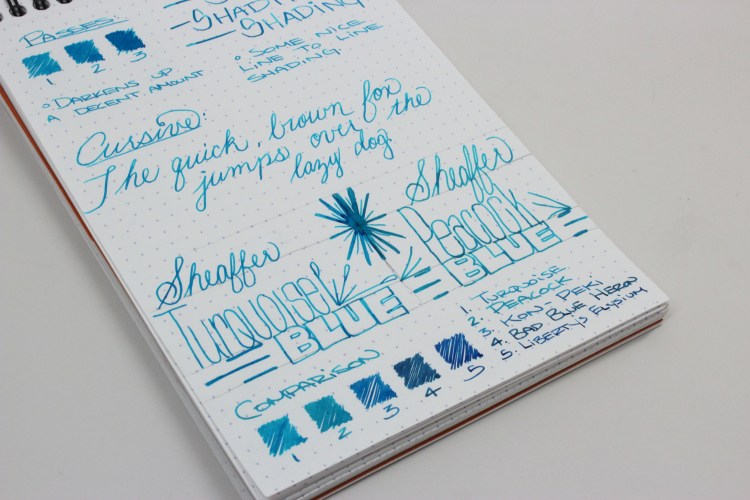 SHADING
SHADING
PASSES:
1 2 3
○ DARKENS UP
A DECENT AMOUNT
○ SOME NICE
LINE TO LINE
SHADING.
Cursive:
The quick, brown fox
jumps over the
lazy dog.
Sheaffer
Turquoise
BLUE
Sheaffer
Peacock
BLUE
1. TURQUOISE
2. PEACOCK
3. KON-PEKI
4. BAD BLUE HERON
5. LIBERTY'S ELYSIUM
COMPARISON
1 2 3 4 5